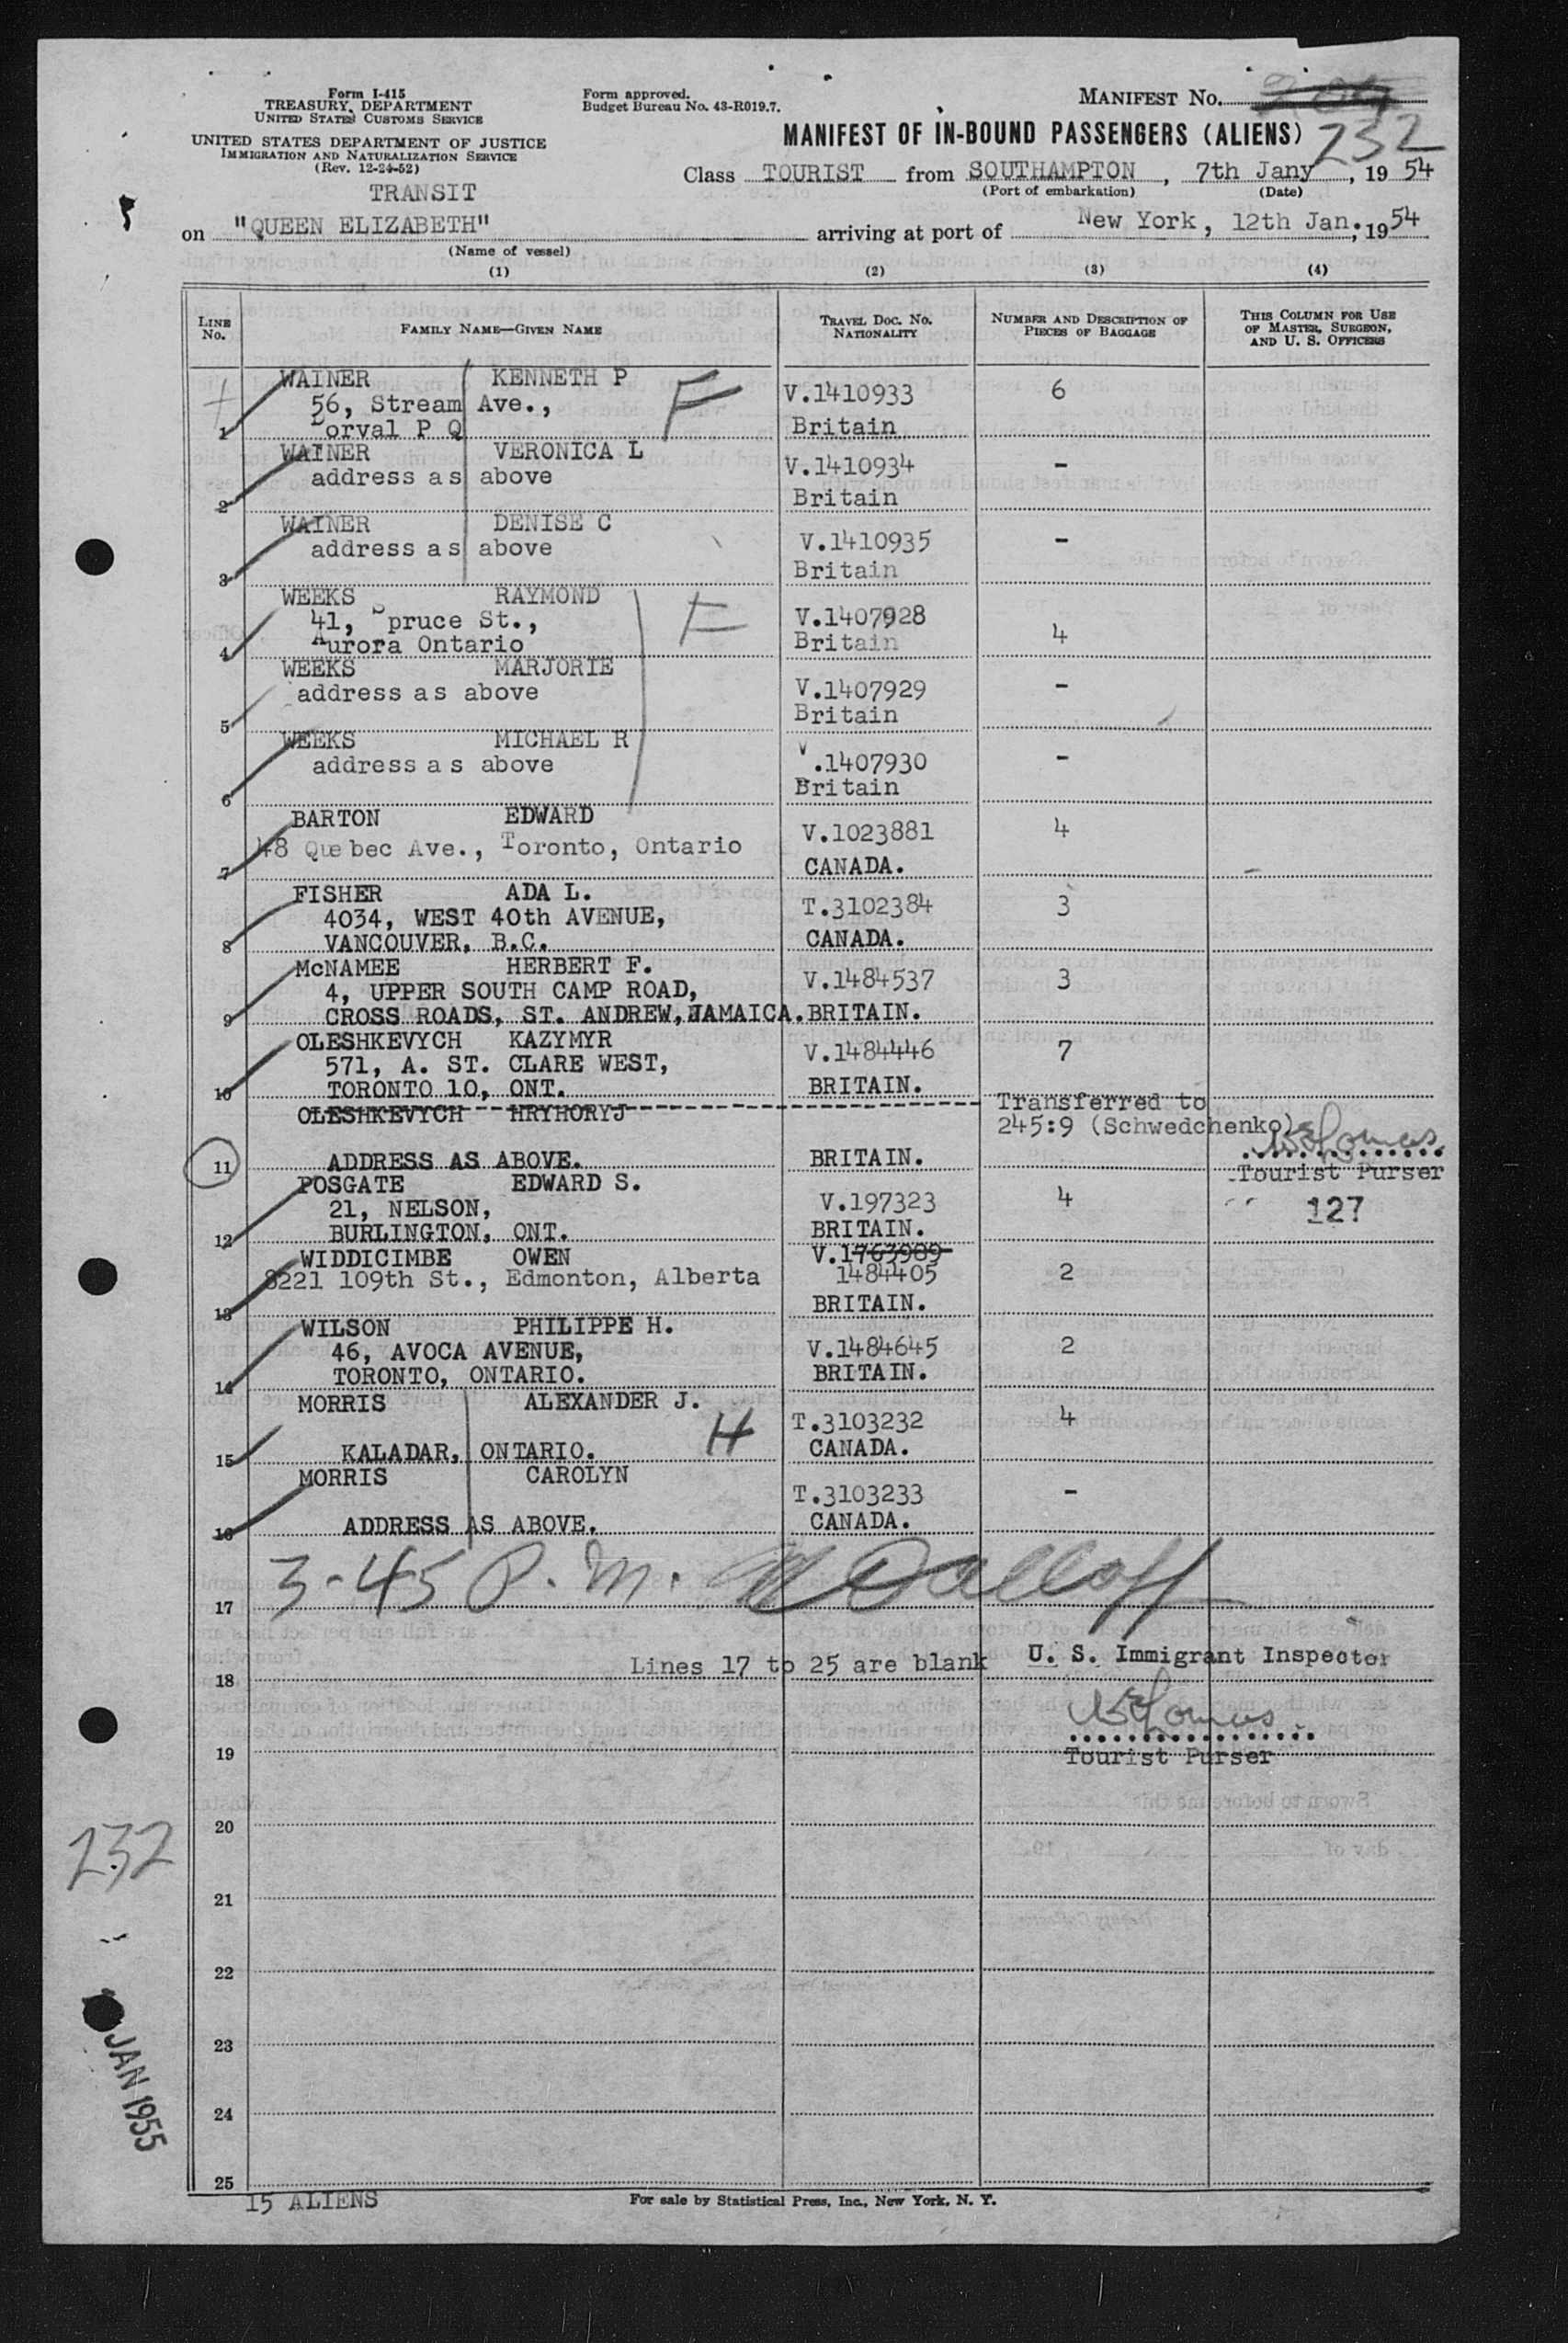 Form I-415
TREASURY DEPARTMENT
UNITED STATES CUSTOMS SERVICE
UNITED STATES DEPARTMENT OF JUSTICE
IMMIGRATION AND NATURALIZATION SERVICE
(Rev. 12-24-52)
Form approved.
Budget Bureau No. 43-R019.7.
MANIFEST No.
232
MANIFEST OF IN-BOUND PASSENGERS (ALIENS)
Class TOURIST from SOUTHAMPTON, 7th Jany, 1954
(Port of embarkation) (Date)
TRANSIT
on "QUEEN ELIZABETH" arriving at port of New York, 12th Jan., 1954
(Name of vessel)
(1) (2) (3) (4)
LINE No. FAMILY NAME—GIVEN NAME TRAVEL DOC. NO. NATIONALITY NUMBER AND DESCRIPTION OF PIECES OF BAGGAGE THIS COLUMN FOR USE OF MASTER, SURGEON, AND U. S. OFFICERS
WAINER KENNETH P F V.1410933 6
56, Stream Ave.,
1 Dorval P Q Britain
WAINER VERONICA L V.1410934 -
address as above
2 Britain
WAINER DENISE C V.1410935 -
address as above
3 Britain
WEEKS RAYMOND F V.1407928
41, Spruce St.,
4 Aurora Ontario Britain 4
WEEKS MARJORIE V.1407929 -
address as above
5 Britain
WEEKS MICHAEL R V.1407930 -
address as above
6 Britain
BARTON EDWARD V.1023881 4
48 Quebec Ave., Toronto, Ontario
7 CANADA.
FISHER ADA L. T.3102384 3
4034, WEST 40th AVENUE,
8 VANCOUVER, B.C. CANADA.
McNAMEE HERBERT F. V.1484537 3
4, UPPER SOUTH CAMP ROAD,
9 CROSS ROADS, ST. ANDREW, JAMAICA. BRITAIN.
OLESHKEVYCH KAZYMYR V.1484446 7
571, A. ST. CLARE WEST,
10 TORONTO 10, ONT. BRITAIN.
OLESHKEVYCH HRYHORYJ Transferred to
245:9 (Schwedchenko)
11 ADDRESS AS ABOVE. BRITAIN.
Tourist Purser
POSGATE EDWARD S. V.197323 4 127
21, NELSON,
12 BURLINGTON, ONT. BRITAIN.
WIDDICIMBE OWEN V.1763989
8221 109th St., Edmonton, Alberta 1484405 2
13 BRITAIN.
WILSON PHILIPPE H. V.1484645 2
46, AVOCA AVENUE,
14 TORONTO, ONTARIO. BRITAIN.
MORRIS ALEXANDER J. H T.3103232 4
15 KALADAR, ONTARIO. CANADA.
MORRIS CAROLYN T.3103233 -
16 ADDRESS AS ABOVE. CANADA.
3-45 P.M.
17
Lines 17 to 25 are blank U. S. Immigrant Inspector
18
19 Tourist Purser
20
232
21
22
23
24
25
JAN 1955
15 ALIENS
For sale by Statistical Press, Inc., New York, N. Y.